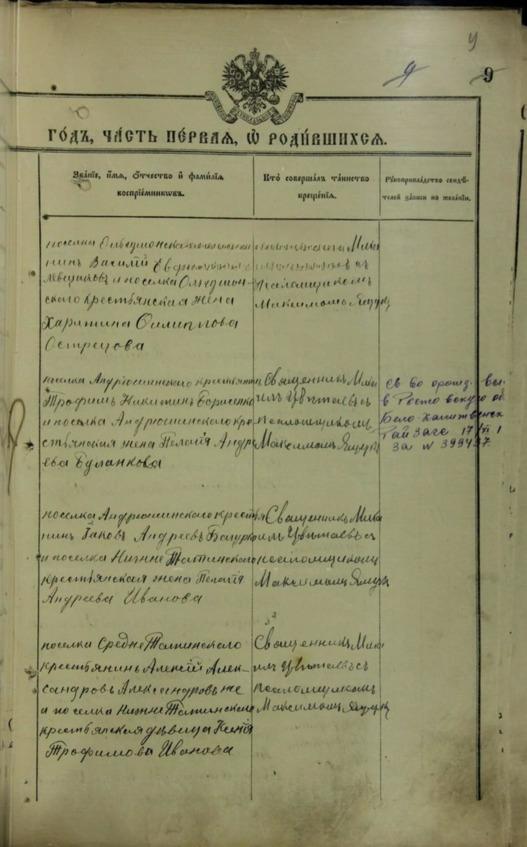 9
9
ГО́ДЪ, ЧА́СТЬ ПЕ́РВАЯ, Ѡ РОДИ́ВШИХСЯ.
Зва́нїе, и́мя, ѻ́тчество и҆ фами́лїя
воспрїе́мниковъ.
Кто̀ соверша́лъ та́инство
креще́нїя.
Рꙋкоприкла́дство свидѣ́-
телей за́писи по жела́нїю.
поселка
нинъ Василій
и поселка
скаго крестьянская жена
Харитина Филиппова
Острецова
Максимомъ Ящукъ
поселка Андрюшинскаго крестьян
Трофимъ Никитинъ Борисенко
и поселка Андрюшенскаго кре
стьянская жена Пелагія Андре
ева Буланкова
Священникъ Миха
илъ Цвѣтаевъ съ
псаломщикомъ
Максимомъ Ящукъ
Св во о рожд. выд.
в Ростовскую об
Бело Калитвенск
Рай Загс 17/
за №
поселка Андрюшинскаго кресть
нинъ Іаковъ Андреевъ
и поселка Нижне
крестьянская жена Пелагія
Андреева Иванова
Священникъ Миха
илъ Цвѣтаевъ съ
псаломщикомъ
Максимомъ Ящукъ
поселка Средне
крестьянинъ Алексій Алек-
сандровъ Александровъ же
и поселка Нижне
крестьянская дѣвица Ксенія
Трофимова Иванова
Священникъ Миха
илъ Цвѣтаевъ съ
псаломщикомъ
Максимомъ Ящукъ